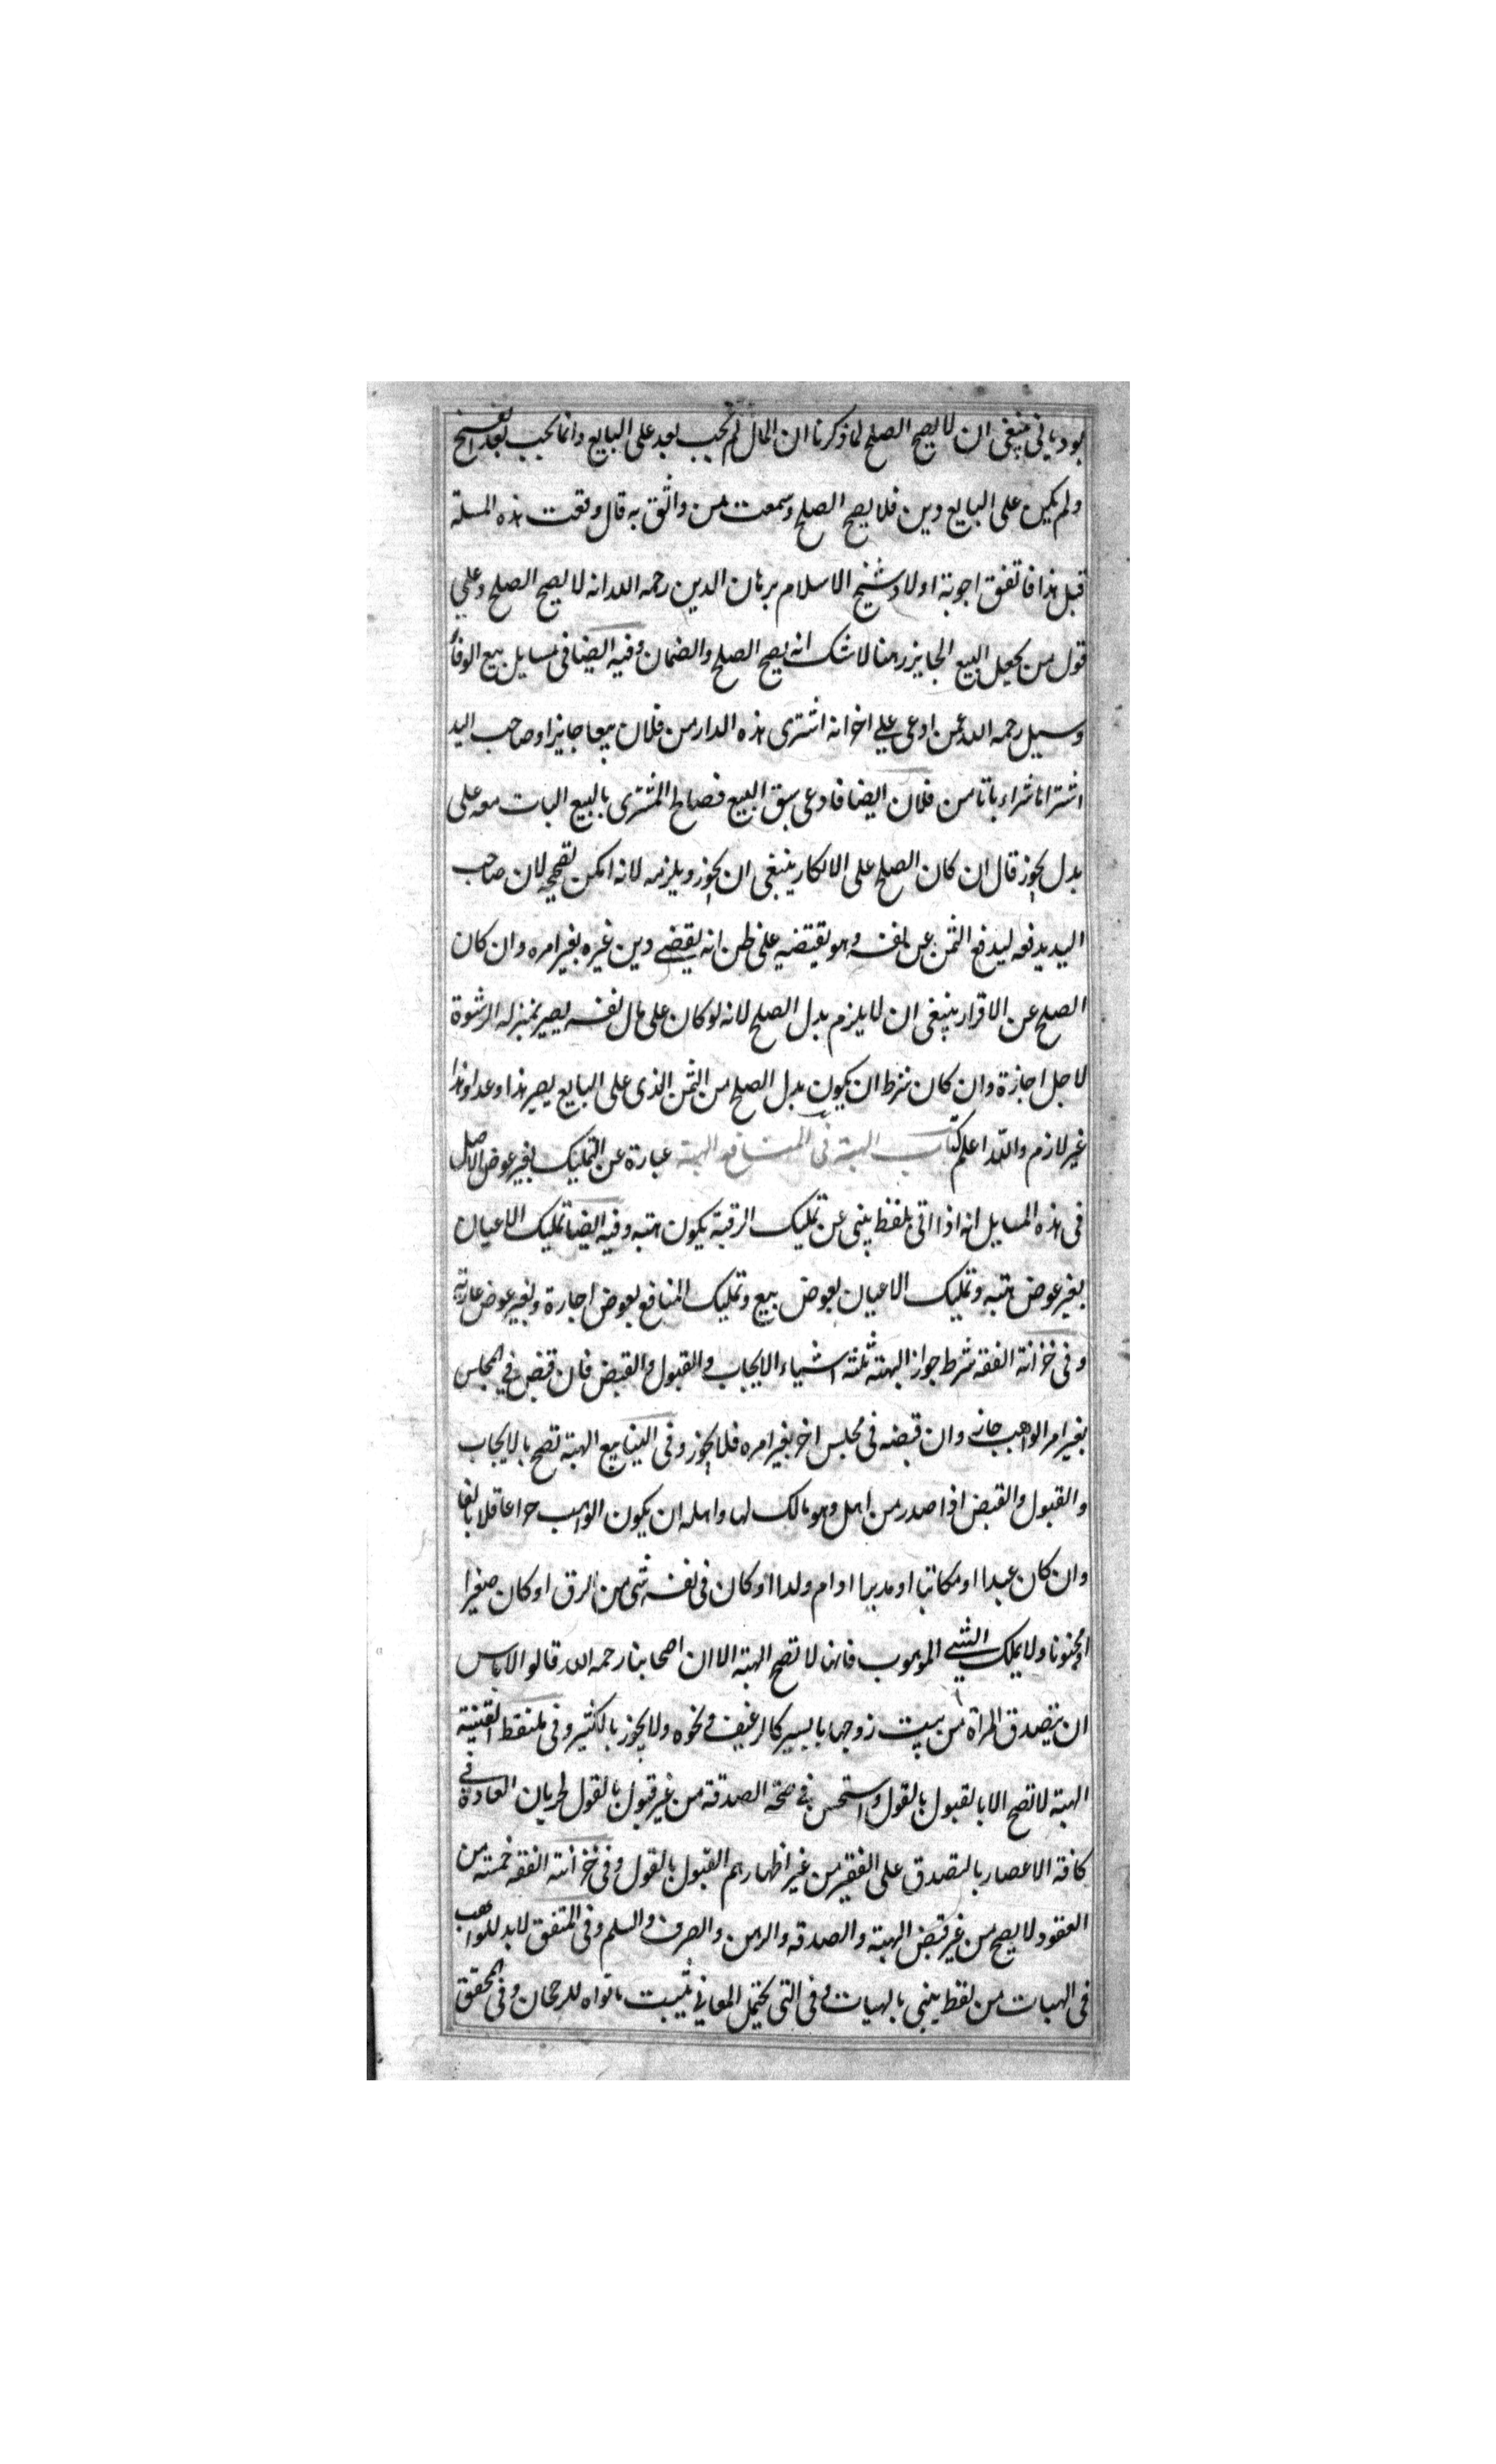 بوديانى ينبغى ان لا يصح الصلح لما ذكرنا ان المال لم يجب بعد على البايع وانما يجب بعد الفسخ
ولم يكن على البايع دين فلا يصح الصلح وسمعت من واثق به قال وقعت هذه المسلة
قبل هذا فاتفق اجوبة اولاد شيخ الاسلام برهان الدين رحمه الله انه لا يصح الصلح وعلى
قول من يجعل البيع الجايز رهنا لا شك انه يصح الصلح والضمان وفيه ايضا فى مسايل بيع الوفا
وسيل رحمه الله عمن ادعى على اخر انه اشترى هذه الدار من فلان بيعا جايزا وصاحب اليد
اشتراها شراء باتا من فلان ايضا فادعى سبق البيع فصالح المشترى بالبيع البات معه على
بدل يجوز قال ان كان الصلح على الانكار ينبغى ان يجوز ويلزمه لانه امكن تصحيحه لان صاحب
اليد يدفعه ليدفع الثمن عن نفسه وهو يقتضيه على ظن انه يقضى دين غيره بغير امره وان كان
الصلح عن الاقرار ينبغى ان لا يلزم بدل الصلح لانه لو كان على مال نفسه يصير بمنزلة الرشوة
لاجل اجازة وان كان شرط ان يكون بدل الصلح من الثمن الذى على البايع يصير هذا وعدا وهذا
غير لازم والله اعلم كتاب الهبة فى المنافع الهبة عبارة عن التمليك بغير عوض الاصل
فى هذه المسايل انه اذا اتى بلفظ ينبى عن تمليك الرقبة يكون هبه وفيه ايضا تمليك الاعيان
بغير عوض هبه وتمليك الاعيان بعوض بيع وتمليك المنافع بعوض اجارة وبغير عوض عارية
وفى خزانة الفقه شرط جواز الهبة ثلثة اشياء الايجاب والقبول والقبض فان قبض فى المجلس
بغير امر الواهب جاز وان قبضه فى مجلس اخر بغير امره فلا يجوز وفى الينابيع الهبة تصح بالايجاب
والقبول والقبض اذا صدر من اهل وهو مالك لها واهله ان يكون الواهب حرا عاقلا بالغا
وان كان عبدا او مكاتبا او مدبرا او ام ولدا او كان فى نفسه شى من الرق او كان صغيرا
او مجنونا ولا يملك الشى الموهوب فانها لا تصح الهبة الا ان اصحابنا رحمه الله قالوا لا باس
ان يتصدق المراة من بيت زوجها باليسير كالرغيف ونحوه ولا يجوز بالكثير وفى ملتقط القنية
الهبة لا تصح الا بالقبول بالقول واستحسن فى صحة الصدقة من غير قبول بالقول لجريان العادة فى
كافة الاعصار بالتصدق على الفقير من غير اظهارهم القبول بالقول وفى خزانة الفقه خمسة من
العقود لا يصح من غير قبض الهبة والصدقه والرهن والصرف والسلم وفى المتفق لا بد للواهب
فى الهبات من لفظ ينبى بالهيات وفى التى يحتمل المعانى يثبت ما نواه للرجحان وفى المحقق